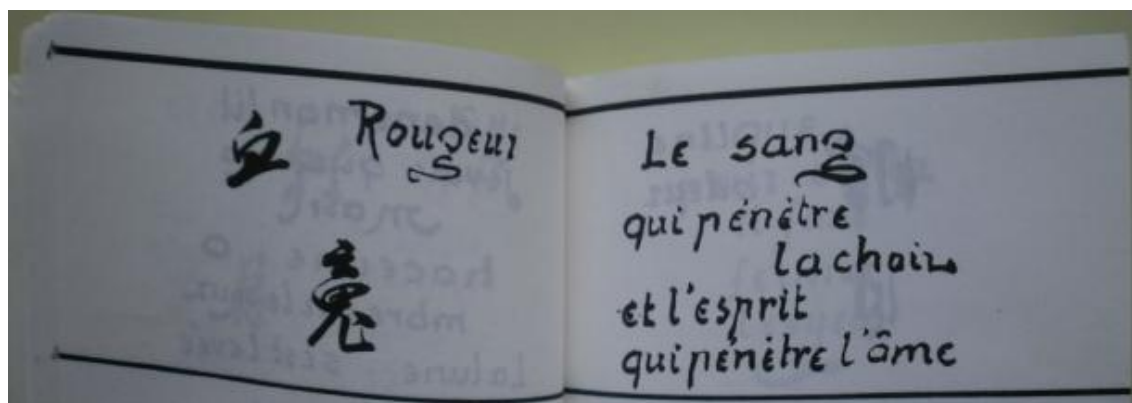 血 Rougeur
Le sang
qui pénètre
la chair
et l'esprit
qui pénètre l'âme